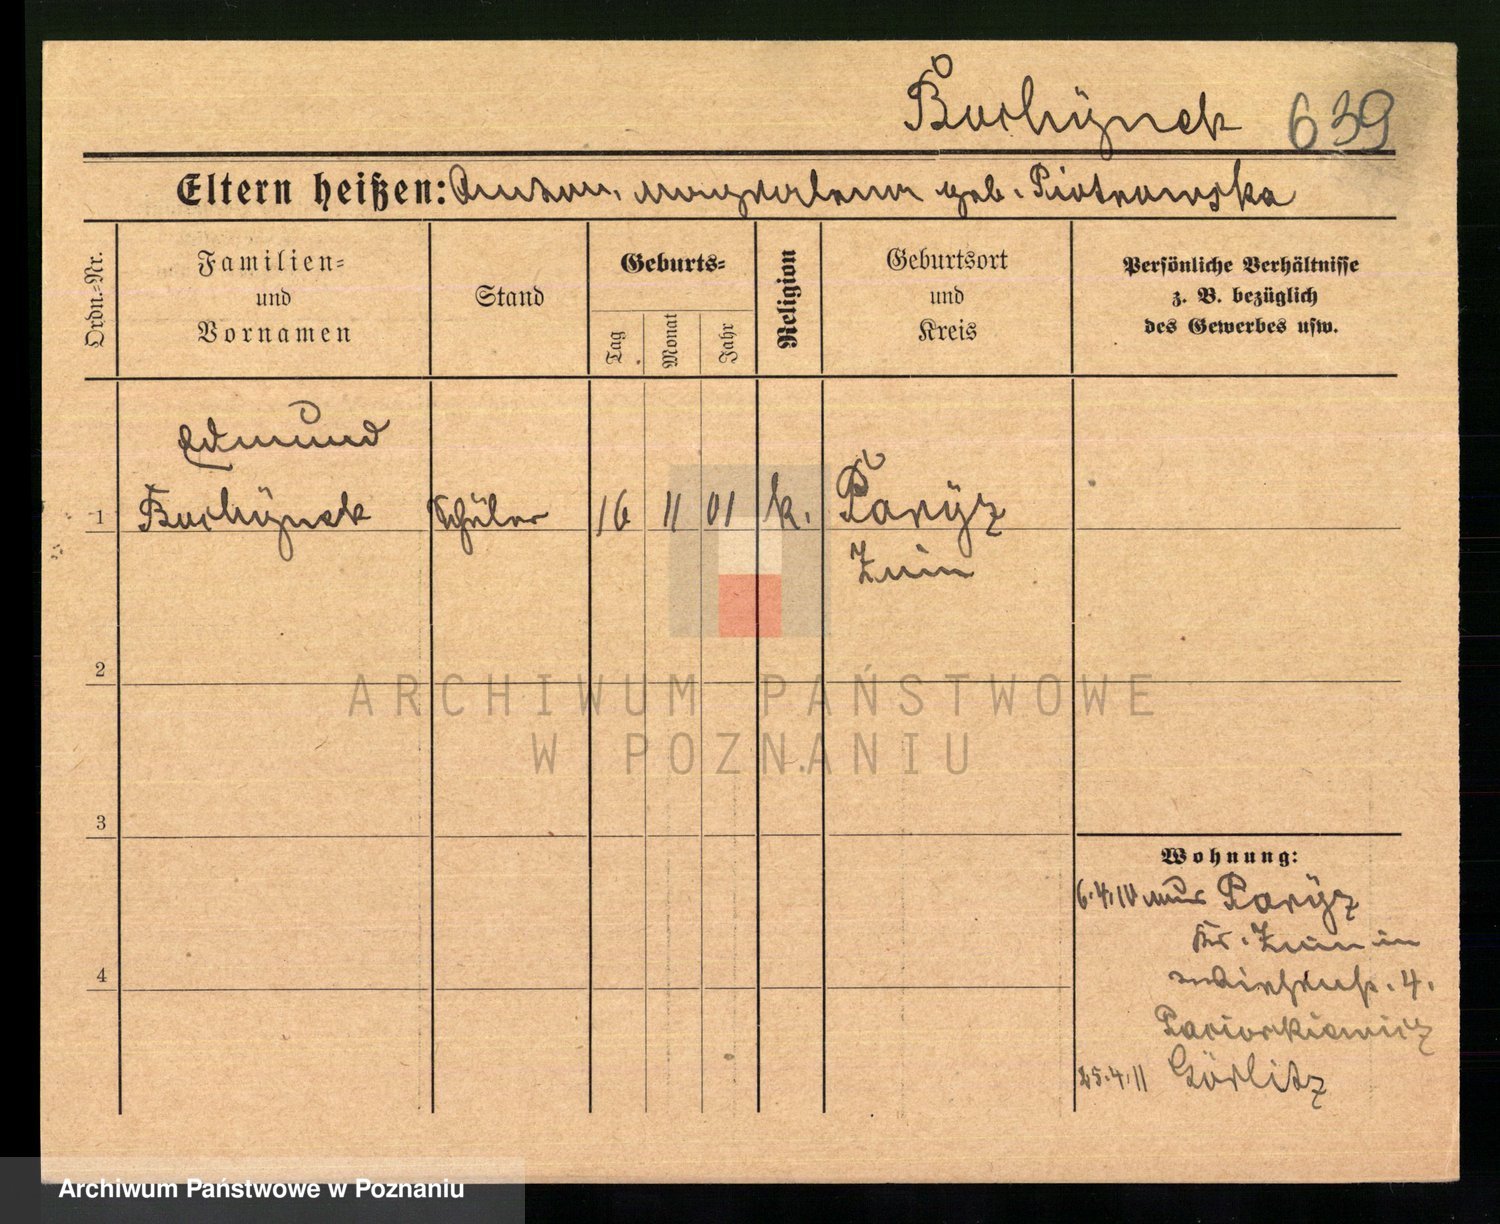 Buchÿnek 639
Eltern heißen: Anton, Magdalena geb. Piotrowska
Ordn.-Nr.
Familien-
und
Vornamen
Stand
Geburts-
Tag
Monat
Jahr
Religion
Geburtsort
und
Kreis
Persönliche Verhältnisse
z. B. bezüglich
des Gewerbes usw.
Edmund
1 Buchÿnek Schüler 16 11 01 k. Parÿz
Znin
2
ARCHIWUM PAŃSTWOWE
W POZNANIU
3
Wohnung:
6.4.10 aus Parÿz
Kr. Znin in
4
4.
25.4.11 Görlitz
Archiwum Państwowe w Poznaniu